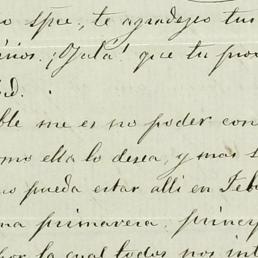 te agradezco tus
¡Ojalá! que tu
ble me es no poder con
omo ella lo desea, y mas
no pueda estar alli en Feb
na primavera, princip
por la cual todos nos int